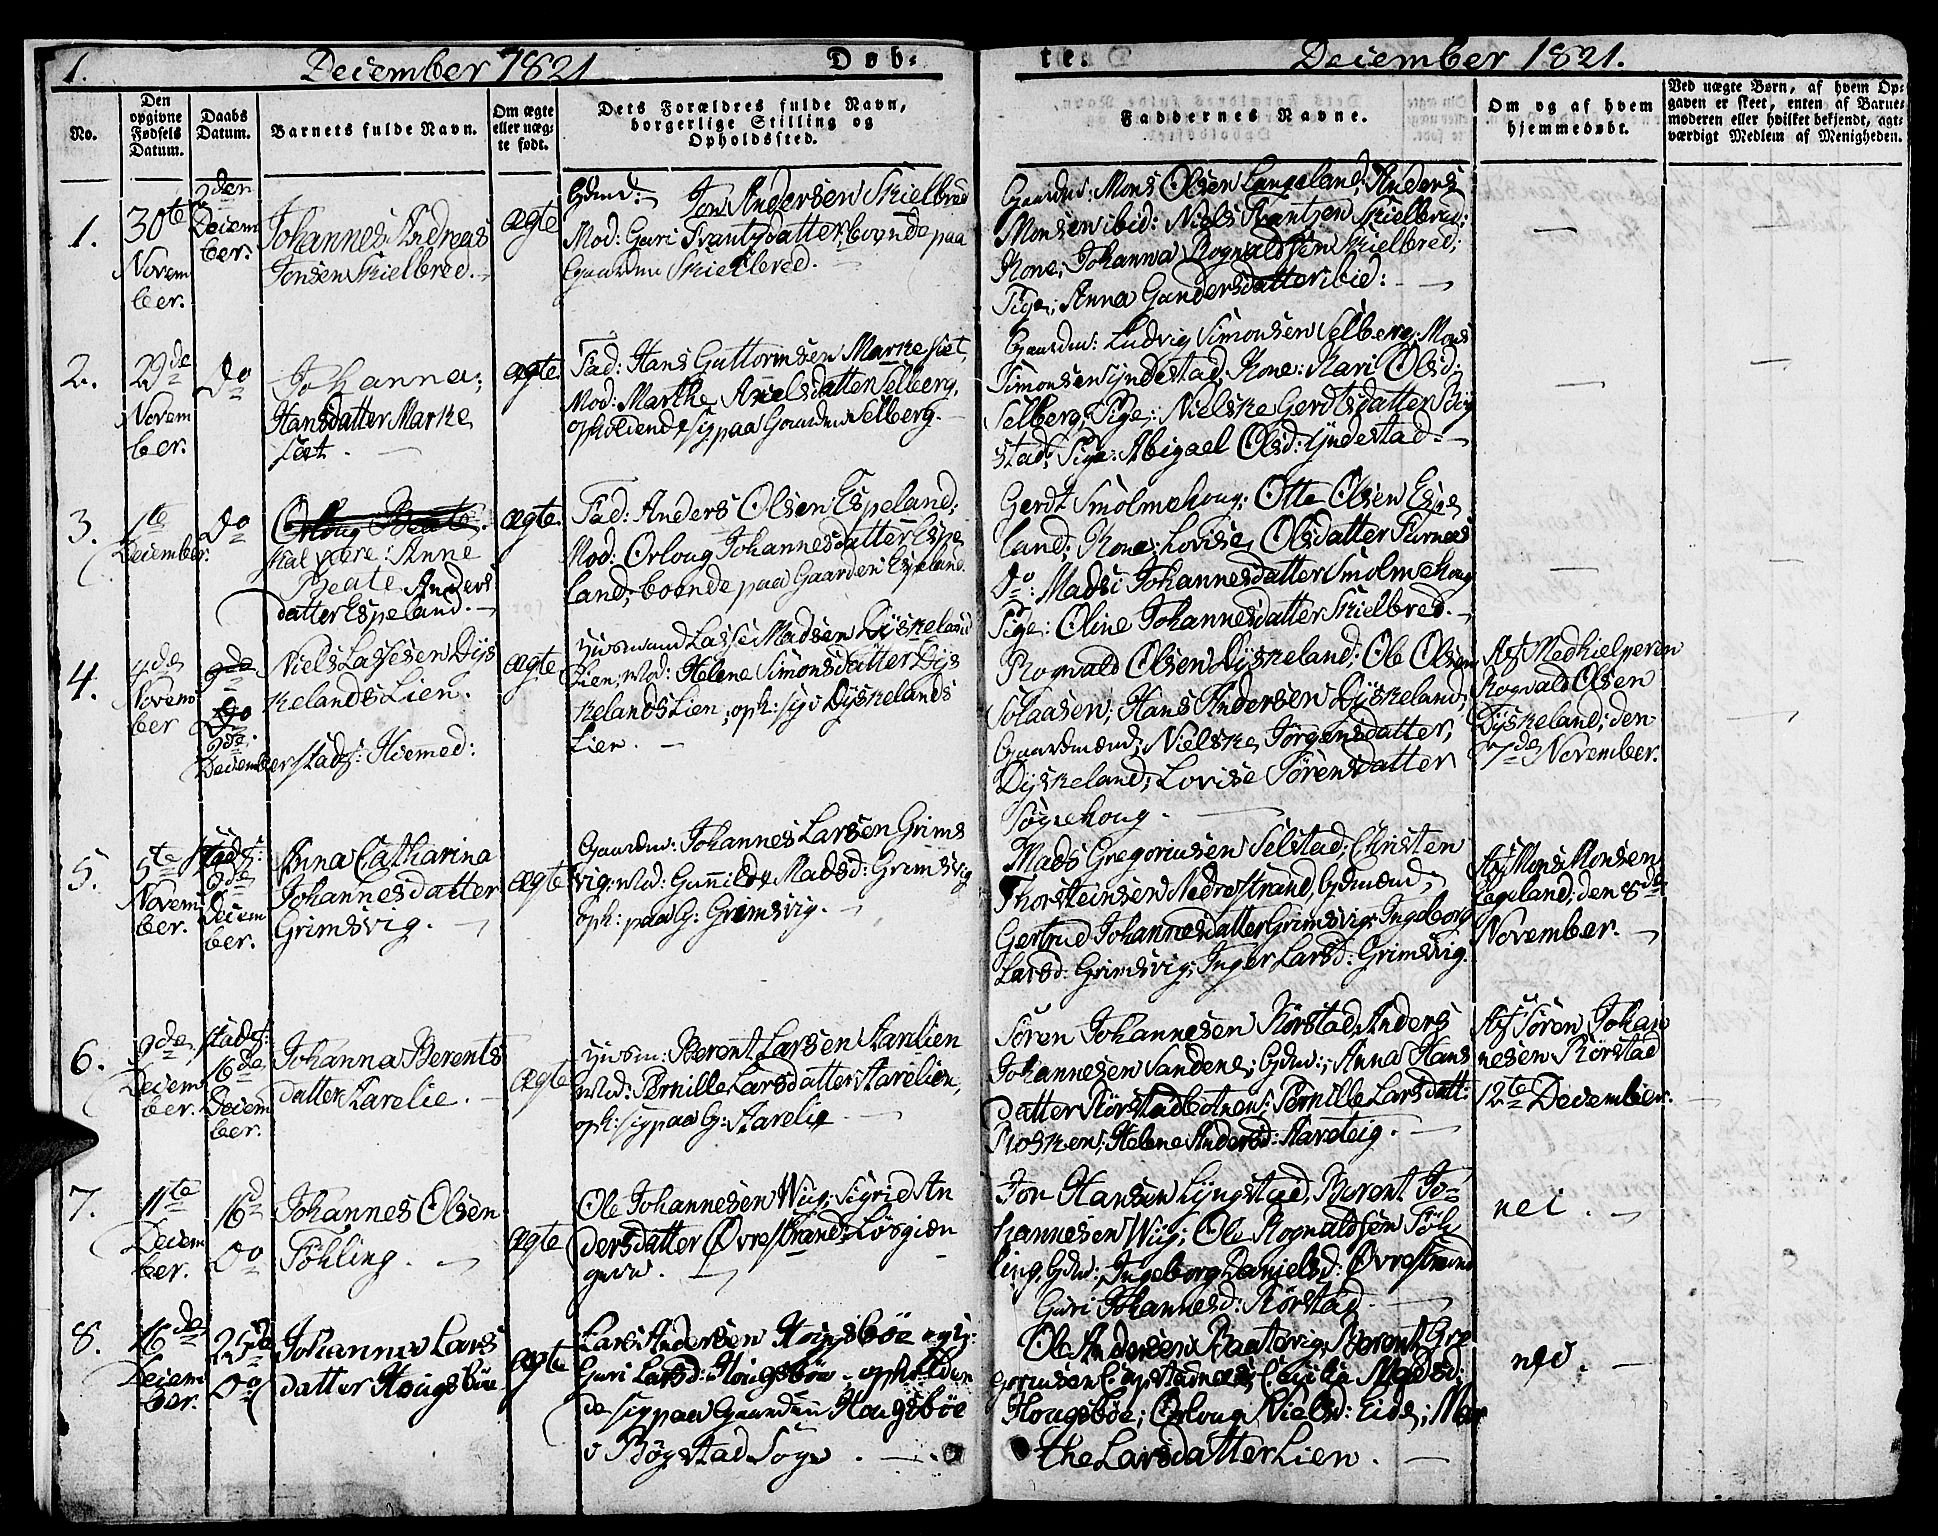 1.
December 1821
Døb-
te.
December 1821.
No.
Den opgivne Fødsels Datum.
Daabs Datum.
Barnets fulde Navn.
Om ægte eller uæg-te født.
Dets Forældres fulde Navn, borgerlige Stilling og Opholdssted.
Faddernes Navne.
Om og af hvem hjemmedøbt.
Ved uægte Børn, af hvem Op-
gaven er skeet, enten af Barne-
moderen eller hvilket bekjendt, agt-
værdigt Medlem af Menigheden.
1.
30te
Novem
ber.
2den
Decem
ber.
Johannes Andreas
Jonsen Skielbred.
ægte
Gdmd: Jon Andersen Skielbred
Mod: Guri Frantzdatter, boende paa
Gaarden Skielbred.
Gaardm: Mons Olsen Langeland; Anders
Monsen ibid: Niels Frantzen Skielbred;
Kone, Johanna Rognaldsen Skielbred;
Pige; Anna Gundersdatter ibid:
2.
29de
Novem
ber.
do
Johanna;
Hansdatter Marke
sæt.
ægte
Fad: Hans Guttormsen Markesæt,
Mod: Marthe Axelsdatter Selberg,
opholdende sig paa Gaarden Selberg.
Gaardm: Ludvig Simonsen Selberg; Mons
Simonsen Yndestad, Kone: Kari Olsd:
Selberg; Pige; Nielske Gerdtsdatter Byg
stad; Pige: Abigael Olsd: Yndestad.
3.
1te
December.
do
Orloug Beate.
skal være: Anne
Beate Anders
datter Espeland.
ægte
Fad: Anders Olsen Espeland;
Mod: Orloug Johannesdatter Espe
land; boende paa Gaarden Espeland.
Gerdt Smolmehoug; Otte Olsen Espe
land; Kone: Lovise Olsdatter Furnes
do: Madsi Johannesdatter Smolmehoug
Pige: Oline Johannesdatter Skielbred.
4.
Novem
ber
9de
December
Niels Lassesen Dys
kelands Lien.
stadf: Hiemed:
ægte
Huusmand Lasse Madsen Dyskeland
Lien, Mod: Helene Simonsdatter Dys
kelands Lien, oph: sig i Dyskelands
Lien.
Rognald Olsen Dyskeland; Ole Olsen
Solaasen; Hans Andersen Dyskeland;
Gaardmænd; Nielske Jørgensdatter,
Dyskeland; Lovise Sørensdatter
Søgnehoug.
Af Medhielperen
Rognald Olsen
Dyskeland; den
7de November.
5.
5te
Novem
ber.
stadf:
9de
Decem
ber.
Anna Catharina
Johannesdatter
Grimsvig.
ægte
Gaardm: Johannes Larsen Grims
vig; Mod: Gunnild Madsd: Grimsvig
oph: paa G: Grimsvig.
Mads Gregoriusen Selstad; Christen
Thorsteinsen Nedrestrand, Gdmænd;
Gertrud Johannesdatter Grimsvig, Ingeborg
Larsd: Grimsvig; Inger Larsd: Grimsvig.
Af Mons Monsen
den 8de
November.
6.
9de
Decem
ber.
stadf:
16de
Decem
ber.
Johanna Berents
datter Aarelie.
ægte
Huusm: Berent Larsen Aarelien
Mod: Pernille Larsdatter Aarelien,
oph: sig paa G: Aarelie
Søren Johannesen Rørstad, Anders
Johannesen Sandene; Gdm:; Anna Hans
datter Rørstadbotnen; Pernille Larsdatt:
Helene Andersd: Aareleig.
Af Søren Johan
nesen Rørstad
12te December.
7.
11te
Decem
ber.
16d
do
Johannes Olsen
Tøhling.
ægte
Ole Johannesen Wiig; Sigrid An
dersdatter Øvrestrand; Løsgiæn
gere.
Jon Hansen Lyngstad, Berent Jo-
hannesen Wiig; Ole Rognaldsen Tøh
ling, Gdm:; Ingeborg Danielsd: Øvrestrand
Guri Johannesd: Rørstad.
nei.
8.
16de
Decem
ber.
25de
do
Johanna Lars
datter Hougsbøe
ægte
Lars Andersen Hougsbøe og
Guri Larsd: Hougsbøe - opholden
de sig paa Gaarden Hougsbøe
i Bygstad Sogn.
Ole Andersen Berent Gre
goriusen Cecilia Madsd:
Hougsbøe; Orloug Nielsd: Eide; Mar
the Larsdatter Lien.
nei.